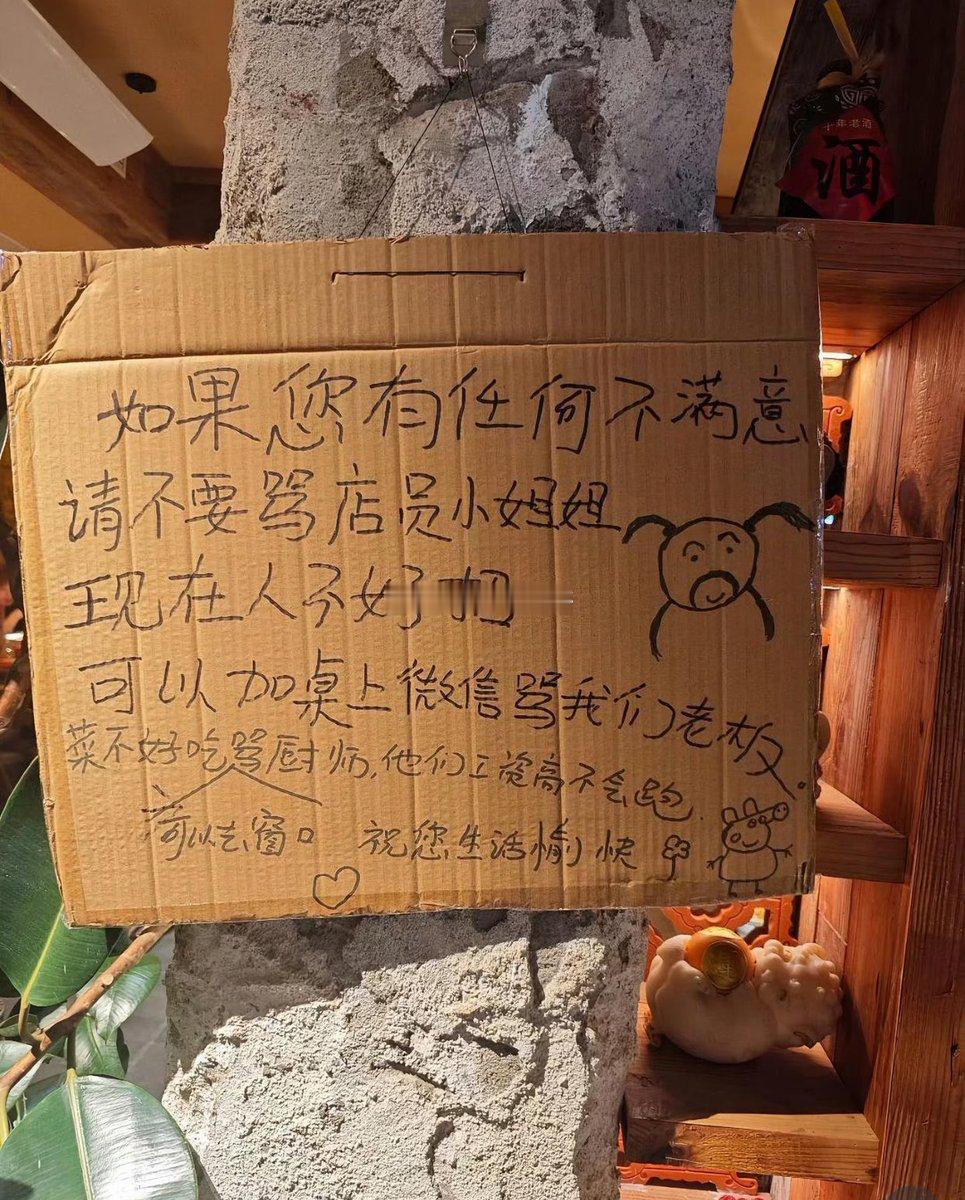 年老酒
酒
如果您有任何不满意
请不要骂店员小姐姐
现在人不好
可以加桌上微信骂我们老板
菜不好吃骂厨师,他们工资高不会跑.
可以去窗口 祝您生活愉快